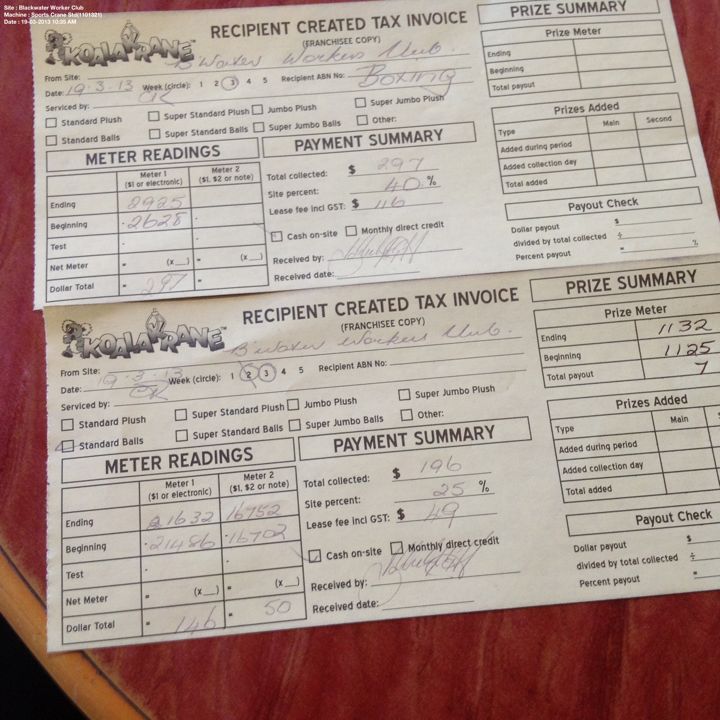 Site : Blackwater Worker Club
Machine : Sports Crane Std(1101321)
Date : 19-03-2013 10:35 AM
KOALA KRANE™
RECIPIENT CREATED TAX INVOICE
(FRANCHISEE COPY)
From Site: B'Water Workers Club.
Date: 19.3.13 Week (circle): 1 2 3 4 5 Recipient ABN No: Boxing
Serviced by:
Standard Plush Super Standard Plush Jumbo Plush Super Jumbo Plush
Standard Balls Super Standard Balls Super Jumbo Balls Other:
METER READINGS
Meter 1 Meter 2
($1 or electronic) ($1, $2 or note)
Ending 2925
Beginning 2628
Test
Net Meter = (x__) = (x__)
Dollar Total = 297 =
PAYMENT SUMMARY
Total collected: $ 297
Site percent: 40 %
Lease fee incl GST: $ 116
Cash on-site Monthly direct credit
Received by:
Received date:
PRIZE SUMMARY
Prize Meter
Ending
Beginning
Total payout
Prizes Added
Type Main Second
Added during period
Added collection day
Total added
Payout Check
Dollar payout $
divided by total collected ÷
Percent payout = %
KOALA KRANE™
RECIPIENT CREATED TAX INVOICE
(FRANCHISEE COPY)
From Site: B'Water Workers Club.
Date: 19.3.13 Week (circle): 1 2 3 4 5 Recipient ABN No:
Serviced by:
Standard Plush Super Standard Plush Jumbo Plush Super Jumbo Plush
Standard Balls Super Standard Balls Super Jumbo Balls Other:
METER READINGS
Meter 1 Meter 2
($1 or electronic) ($1, $2 or note)
Ending 21632 16752
Beginning 21486 16702
Test
Net Meter = (x__) = (x__)
Dollar Total = 146 = 50
PAYMENT SUMMARY
Total collected: $ 196
Site percent: 25 %
Lease fee incl GST: $ 49
Cash on-site Monthly direct credit
Received by:
Received date:
PRIZE SUMMARY
Prize Meter
Ending 1132
Beginning 1125
Total payout 7
Prizes Added
Type Main
Added during period
Added collection day
Total added
Payout Check
Dollar payout $
divided by total collected ÷
Percent payout =